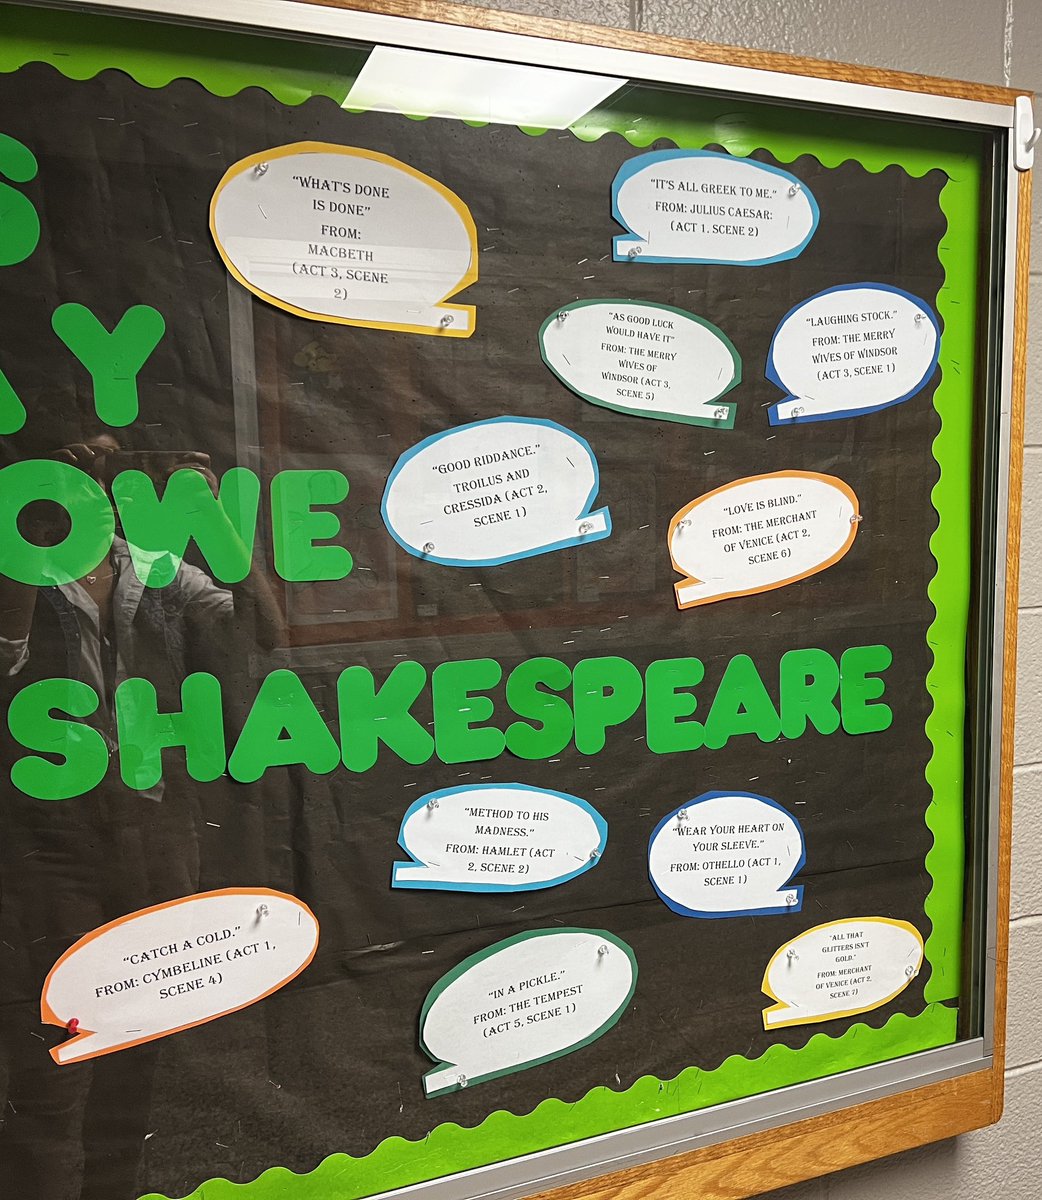 S
AY
OWE
SHAKESPEARE
"WHAT'S DONE
IS DONE"
FROM:
MACBETH
(ACT 3, SCENE
2)
"IT'S ALL GREEK TO ME."
FROM: JULIUS CAESAR:
(ACT 1. SCENE 2)
"AS GOOD LUCK
WOULD HAVE IT"
FROM: THE MERRY
WIVES OF
WINDSOR (ACT 3,
SCENE 5)
"LAUGHING STOCK."
FROM: THE MERRY
WIVES OF WINDSOR
(ACT 3, SCENE 1)
"GOOD RIDDANCE."
TROILUS AND
CRESSIDA (ACT 2,
SCENE 1)
"LOVE IS BLIND."
FROM: THE MERCHANT
OF VENICE (ACT 2,
SCENE 6)
"METHOD TO HIS
MADNESS."
FROM: HAMLET (ACT
2, SCENE 2)
"WEAR YOUR HEART ON
YOUR SLEEVE."
FROM: OTHELLO (ACT 1,
SCENE 1)
"CATCH A COLD."
FROM: CYMBELINE (ACT 1,
SCENE 4)
"IN A PICKLE."
FROM: THE TEMPEST
(ACT 5, SCENE 1)
"ALL THAT
GLITTERS ISN'T
GOLD."
FROM: MERCHANT
OF VENICE (ACT 2,
SCENE 7)